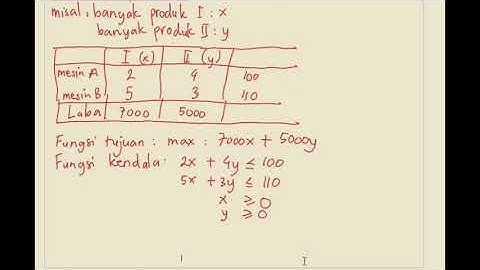 misal : banyak produk I : x
banyak produk II : y
I (x) II (y)
mesin A 2 4 100
mesin B 5 3 110
Laba 7000 5000
Fungsi tujuan : max : 7000x + 5000y
Fungsi kendala : 2x + 4y ≤ 100
5x + 3y ≤ 110
x ≥ 0
y ≥ 0